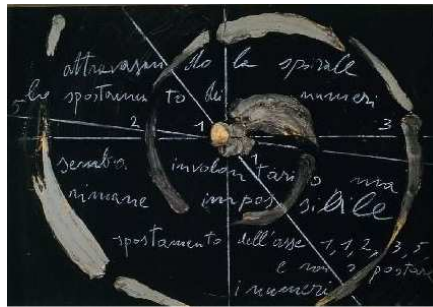 attraversando la spirale
5 lo spostamento dei numeri
2 1 3
1
sembra involontario ma
rimane impossibile
spostamento dell'asse 1, 1, 2, 3, 5
e non spostare
i numeri